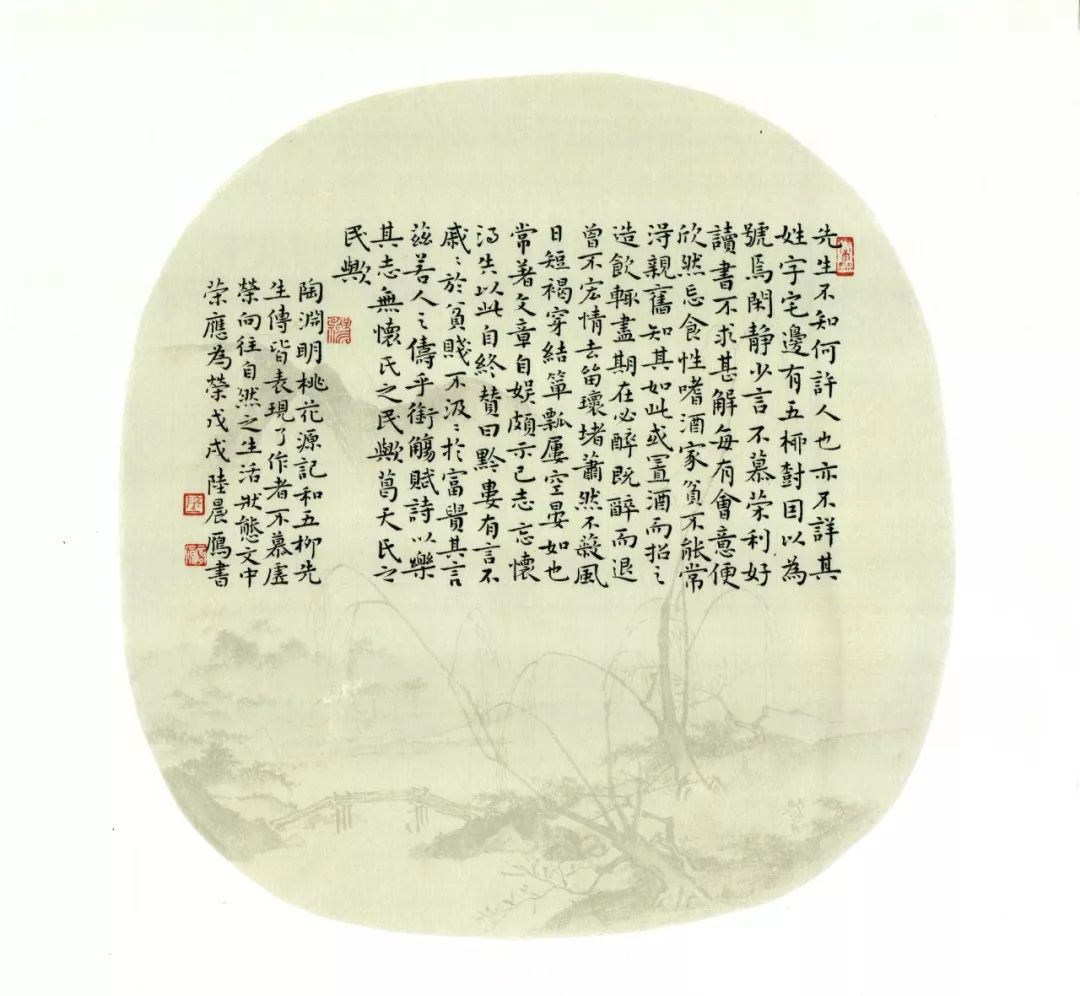 先生不知何許人也亦不詳其
姓字宅邊有五柳樹因以為
號焉閑静少言不慕荣利好
讀書不求甚解每有會意便
欣然忘食性嗜酒家貧不能常
得親舊知其如此或置酒而招之
造飲輒盡期在必醉既醉而退
曾不吝情去留環堵蕭然不蔽風
日短褐穿結簞瓢屢空晏如也
常著文章自娱頗示己志忘懷
得失以此自終赞曰黔婁有言不
戚〻於貧賤不汲〻於富貴其言
兹若人之儔乎銜觴賦詩以樂
其志無懷氏之民歟葛天氏之
民歟
陶淵明桃花源記和五柳先
生傳皆表現了作者不慕虚
榮向往自然之生活狀態文中
荣應為榮戊戌陸晨雁書